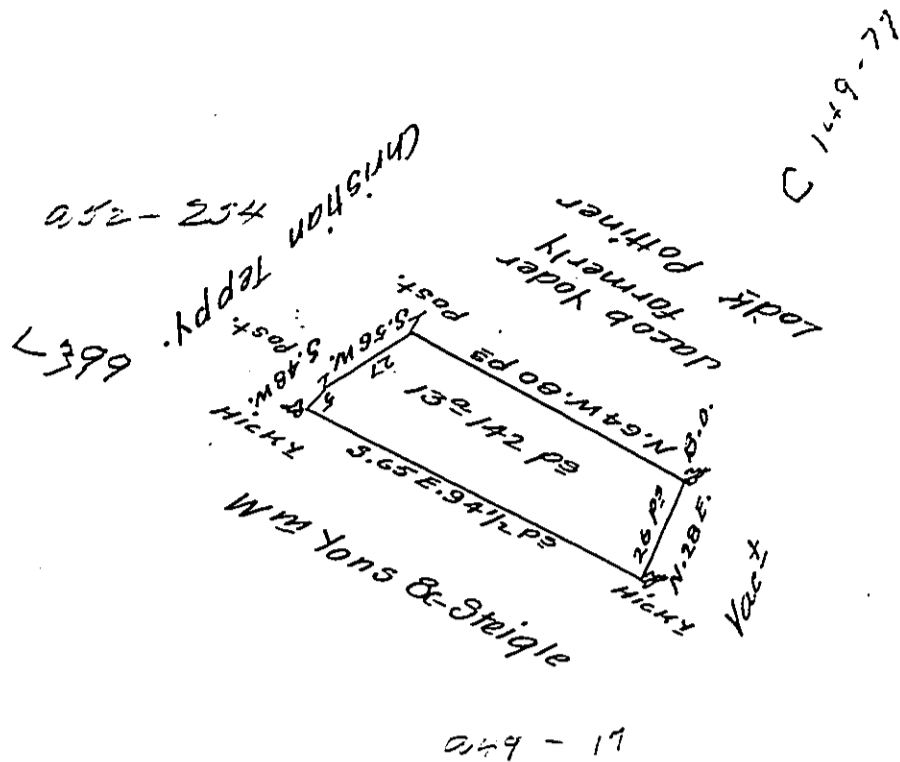 C 149-77
a52 - 254
Christian Teppy.
L 399
Jacob Yoder
formerly
Lod͟k Pottiner
Post.
S.56 W.
27
Post.
S.48 W.
5
Hicky
N.64 W. 80 ps
13a 142 ps
S.65 E. 94½ ps
B.O.
26 ps
N.28 E.
Hicky
Vact
Wm Yons &-Steigle
a49 - 17